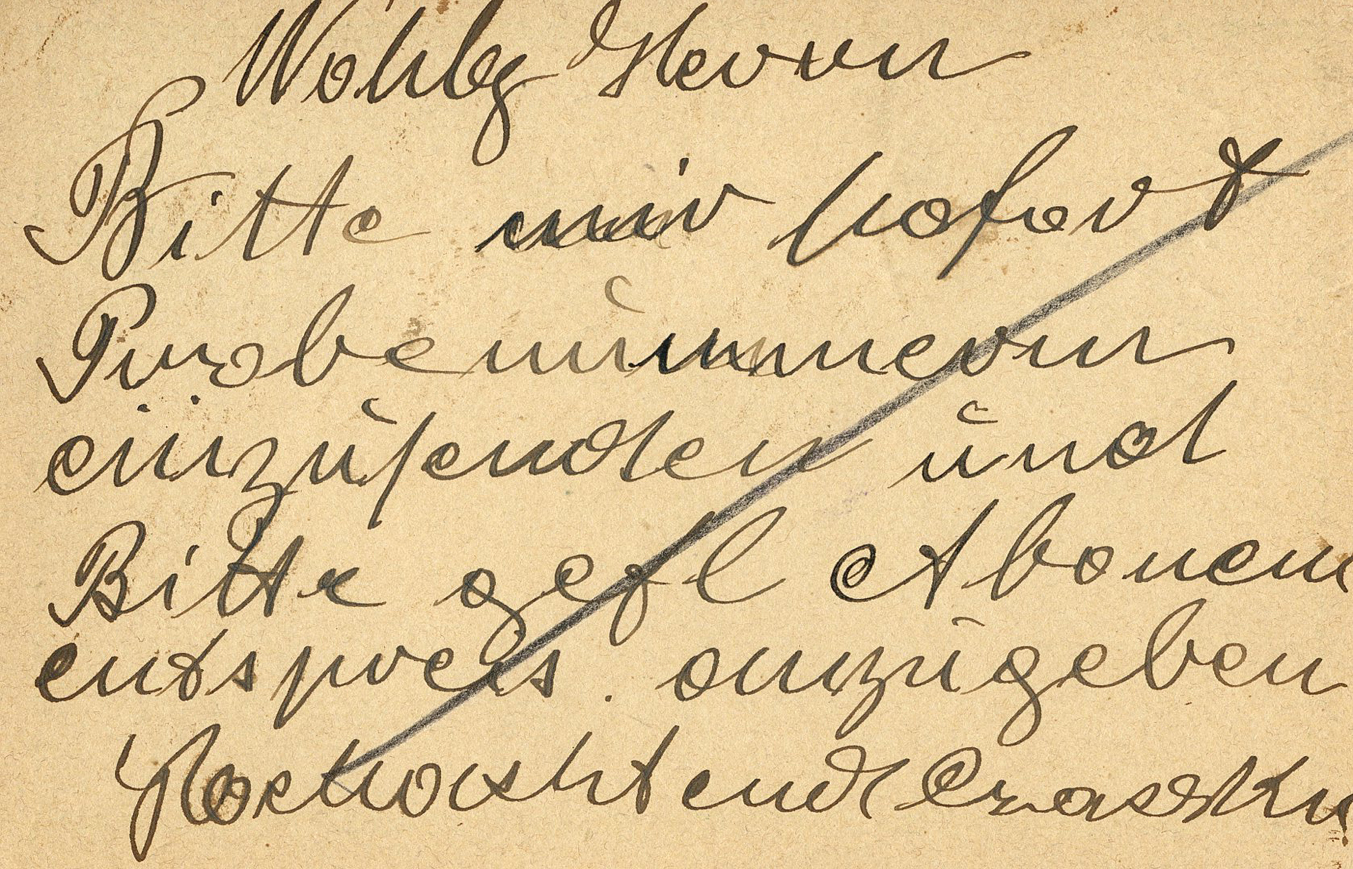 Wohlg Herrn
Bitte mir sofort
Probenummern
einzusenden und
Bitte gefl Abonem
entspreis. anzugeben
Hochachtend